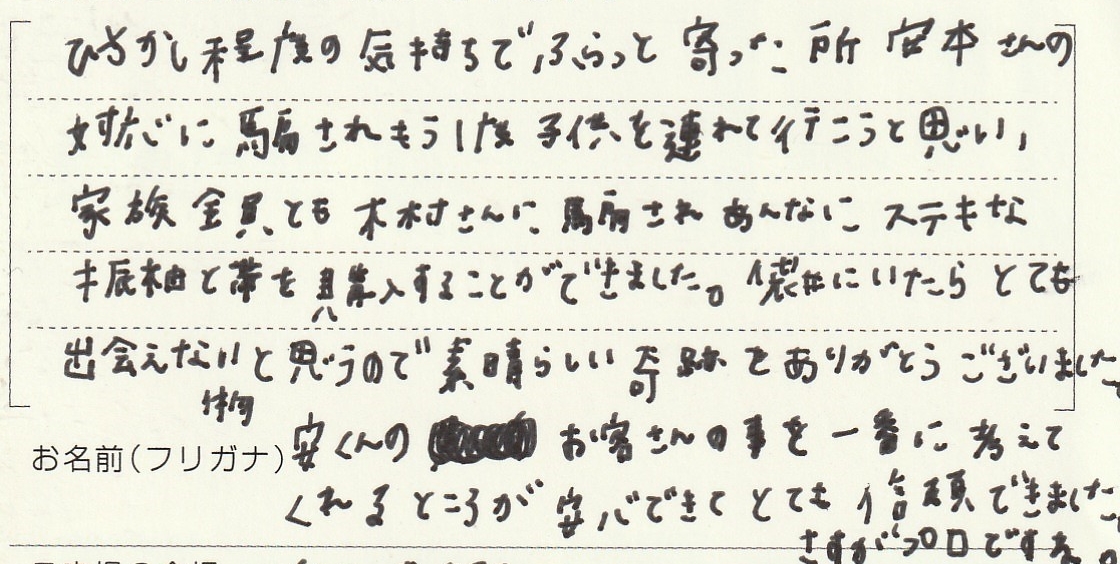 ひやかし程度の気持ちで ふらっと 寄った 所 宮本 さんの
対応に 騙されもう1度 子供を連れて行こうと思い、
家族全員とも 木村さんに 騙され あんなに ステキな
振袖と帯を 購入することができました。 にいたら とても
出会えない 物 と思うので 素晴らしい 奇跡を ありがとう ございました
お名前(フリガナ) 安くんの お客さんの事を 一番に 考えて
くれる ところが 安心できて とても 信頼できました
さすが プロ ですね。